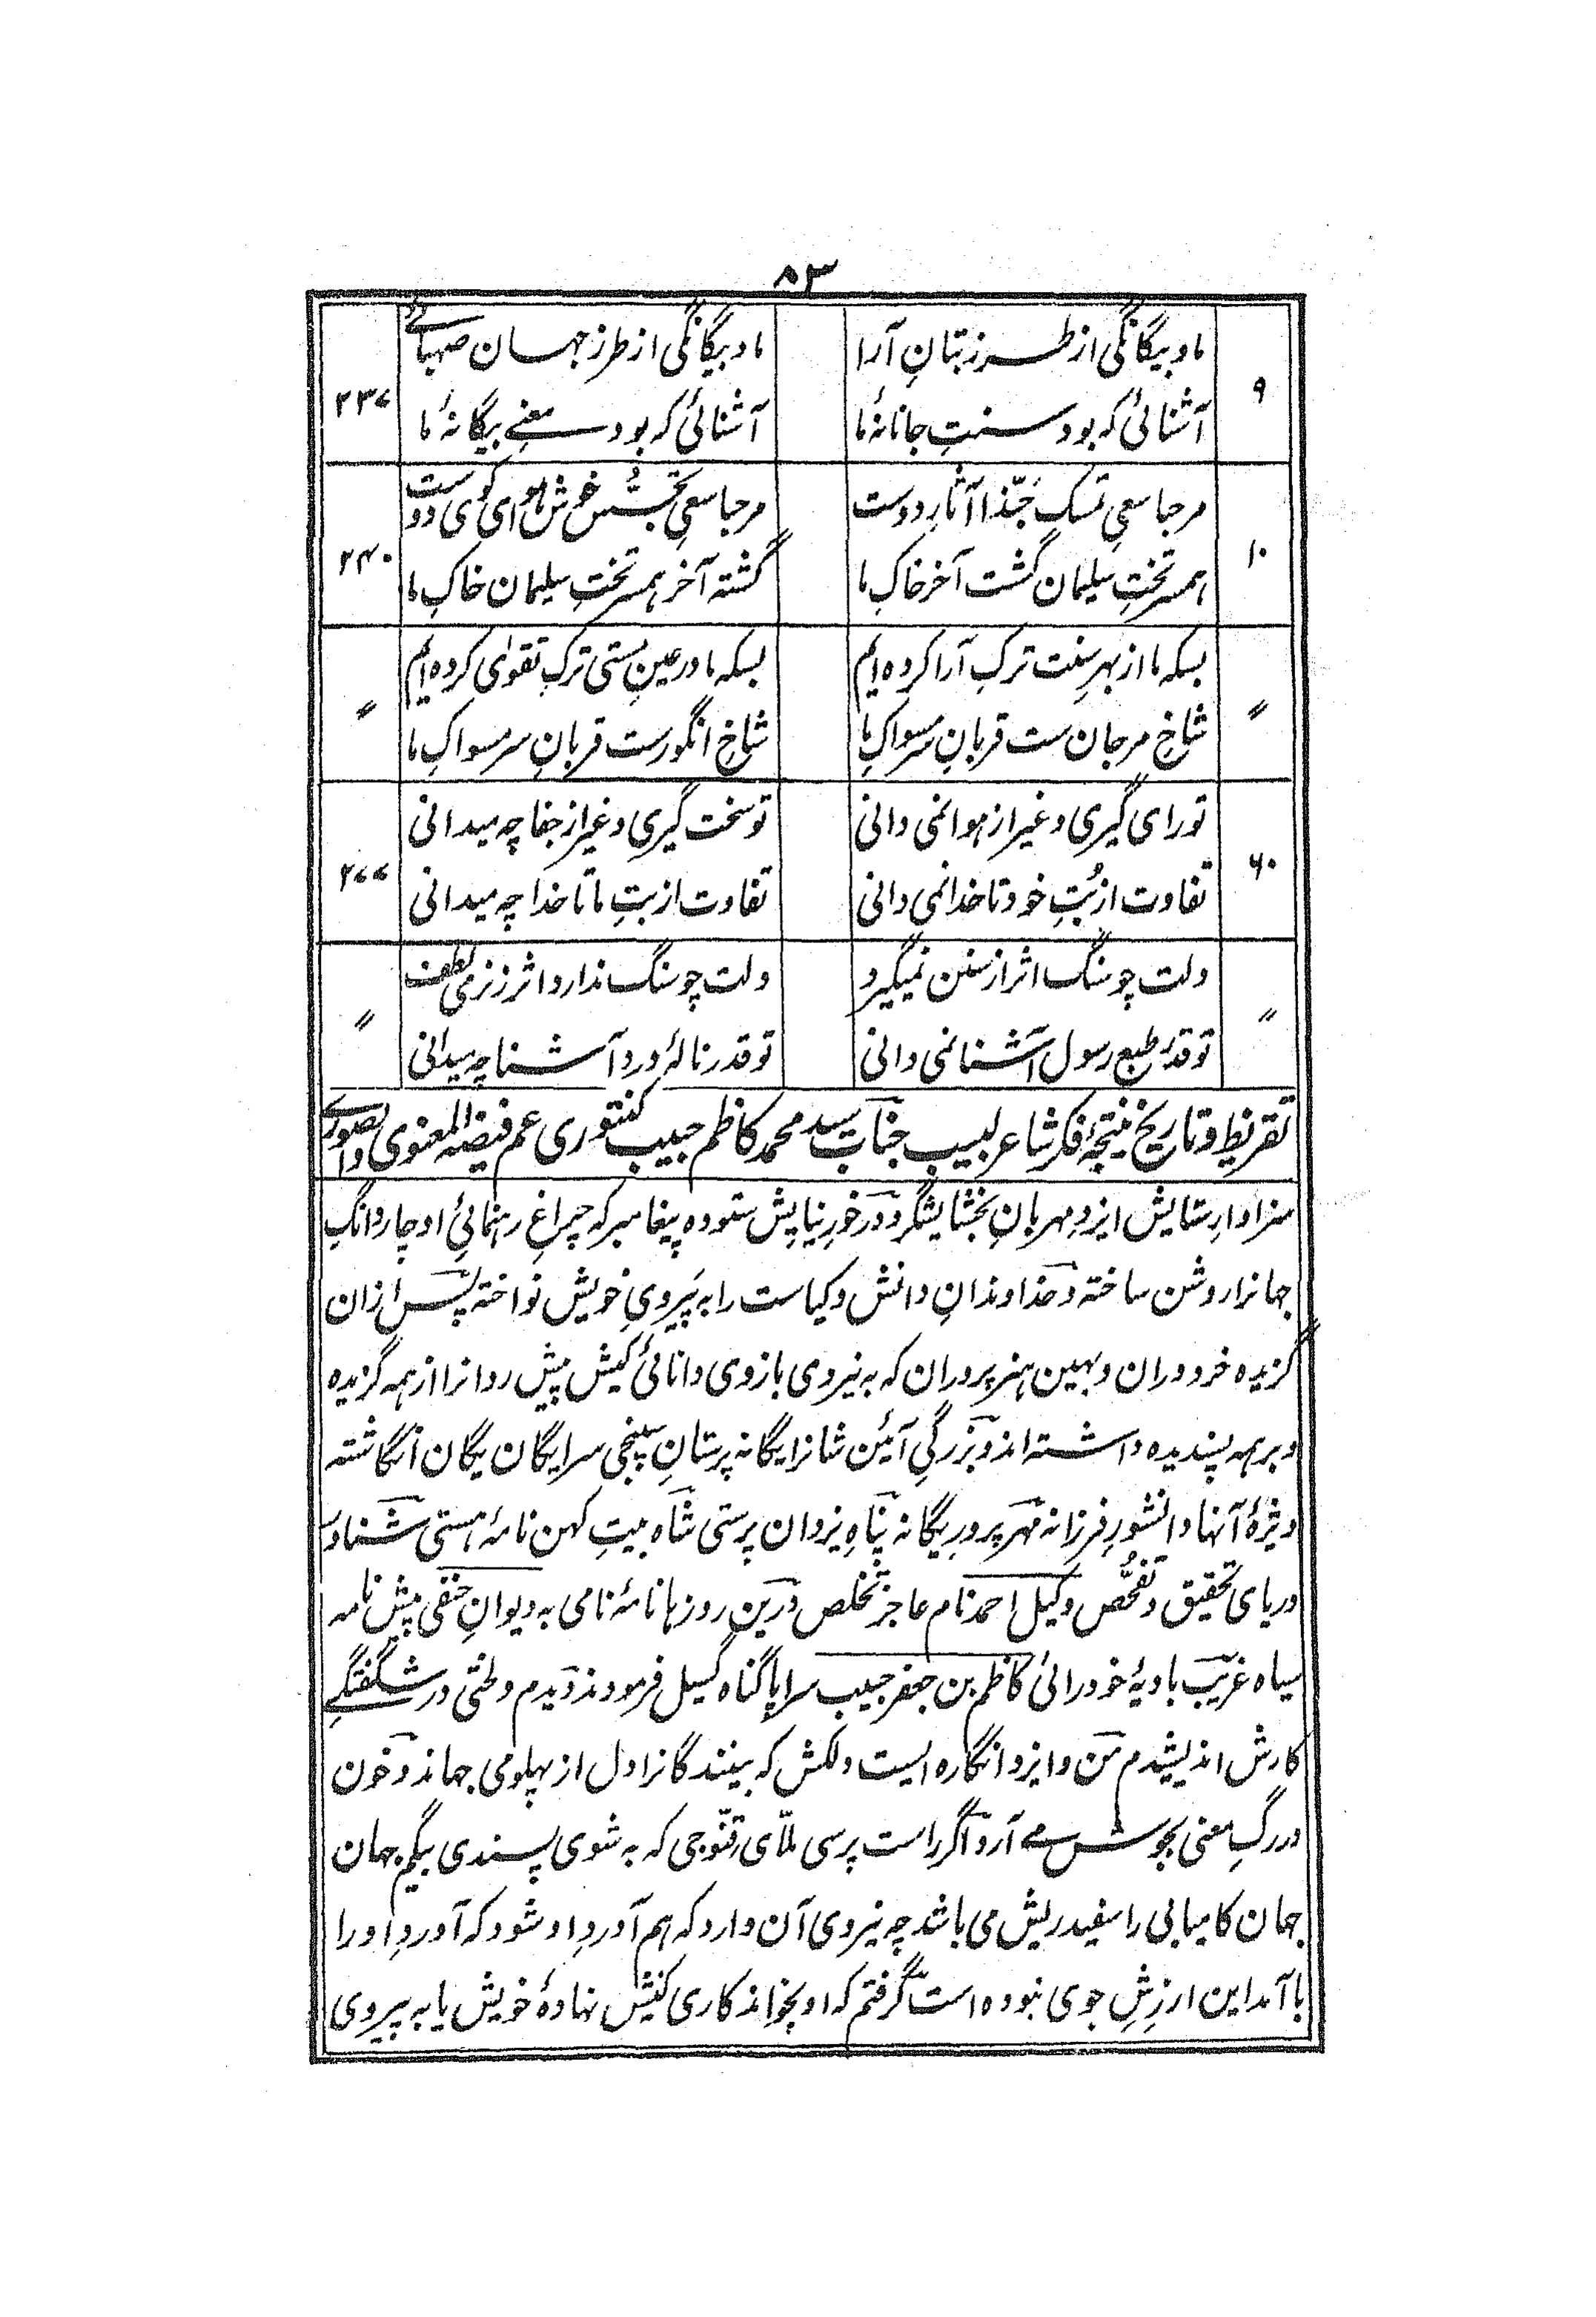 ٨٣
٩
ما و بیگانگی از طرز بتانِ آرا
ما و بیگانگی از طرز جهان صهبائے
٢٣٧
آشنائی که بود سنتِ جانانۂ ما
آشنائی که بود معنے بیگانۂ ما
١٠
مرحبا سعیِ تمسک حَبّذا آثارِ دوست
مرحبا سعیِ تجسُّس خوش هوای کوی دوست
٢٤٠
همسرِ تختِ سلیمان گشت آخر خاکِ ما
گشته آخر همسر تختِ سلیمان خاکِ ما
〃
بسکه ما از بهرِ سنت ترکِ آرا کرده ایم
بسکه ما در عینِ مستی ترکِ تقوٰی کرده ایم
〃
شاخِ مرجان ست قربانِ سرِ مسواکِ ما
شاخِ انگورست قربانِ سر مسواکِ ما
٦٠
تو رای گیری و غیر از هوا نمی دانی
تو سخت گیری و غیر از جفا چه میدانی
٢٧٧
تفاوت از بُتِ خود تا خدا نمی دانی
تفاوت از بتِ ما تا خدا چه میدانی
〃
دلت چو سنگ اثر از سنن نمیگیرد
دلت چو سنگ ندارد اثر ز نرمی لطف
〃
تو قدرِ طبع رسول آشنا نمی دانی
تو قدر نالۂ درد آشنا چه میدانی
تقریظ و تاریخ نتیجۂ فکر شاعر لبیب جناب سید محمد کاظم حبیب کنتوری عم فیضه المعنوی والصوری
سزاوارِ ستایش ایزدِ مهربانِ بخشایشگر و درخورِ نیایش ستوده پیغامبر که چراغِ رهنمائیِ او چار دانگِ
جهانرا روشن ساخته و خداوندانِ دانش و کیاست را به پَیرویِ خویش نواخته پس ازان
گزیده خردوران و بهین هنرپروران که به نیروی بازوی دانائی کیش پیش روانرا از همه گزیده
و بر همه پسندیده داشته اند و بزرگیِ آئین شانرا یگانه پرستانِ سپنجی سرا یگان یگان انگاشته
ویژۂ آنها دانشورِ فرزانه مهر پرورِ یگانه پناهِ یزدان پرستی شاه بیتِ کهن نامۂ هستی شناور
دریای تحقیق و تفحُّص وکیل احمد نام عاجز تخلص درین روزها نامۂ نامی به دیوانِ حنفی پیش نامه
سیاه غریب بادیۂ خودرائی کاظم بن جعفر حبیب سراپا گناه گسیل فرمودند دیدم و لختی در شگفتگیِ
کارش اندیشیدم من و ایزد انگاره ایست دلکش که بینندگانرا دل از پهلو می جهاند و خون
در رگِ معنی بجوش مے آرد اگر راست پرسی ملّای قنّوجی که به شوی پسندی بیگم جهان
جهان کامیابی را سفید ریش می باشد چه نیروی آن دارد که هم آوردِ او شود که آوردِ او را
با آمد این ارزشِ جوی نبوده است گرفتم که او بخواند کاری کنش نهادۂ خویش یا به پیروی